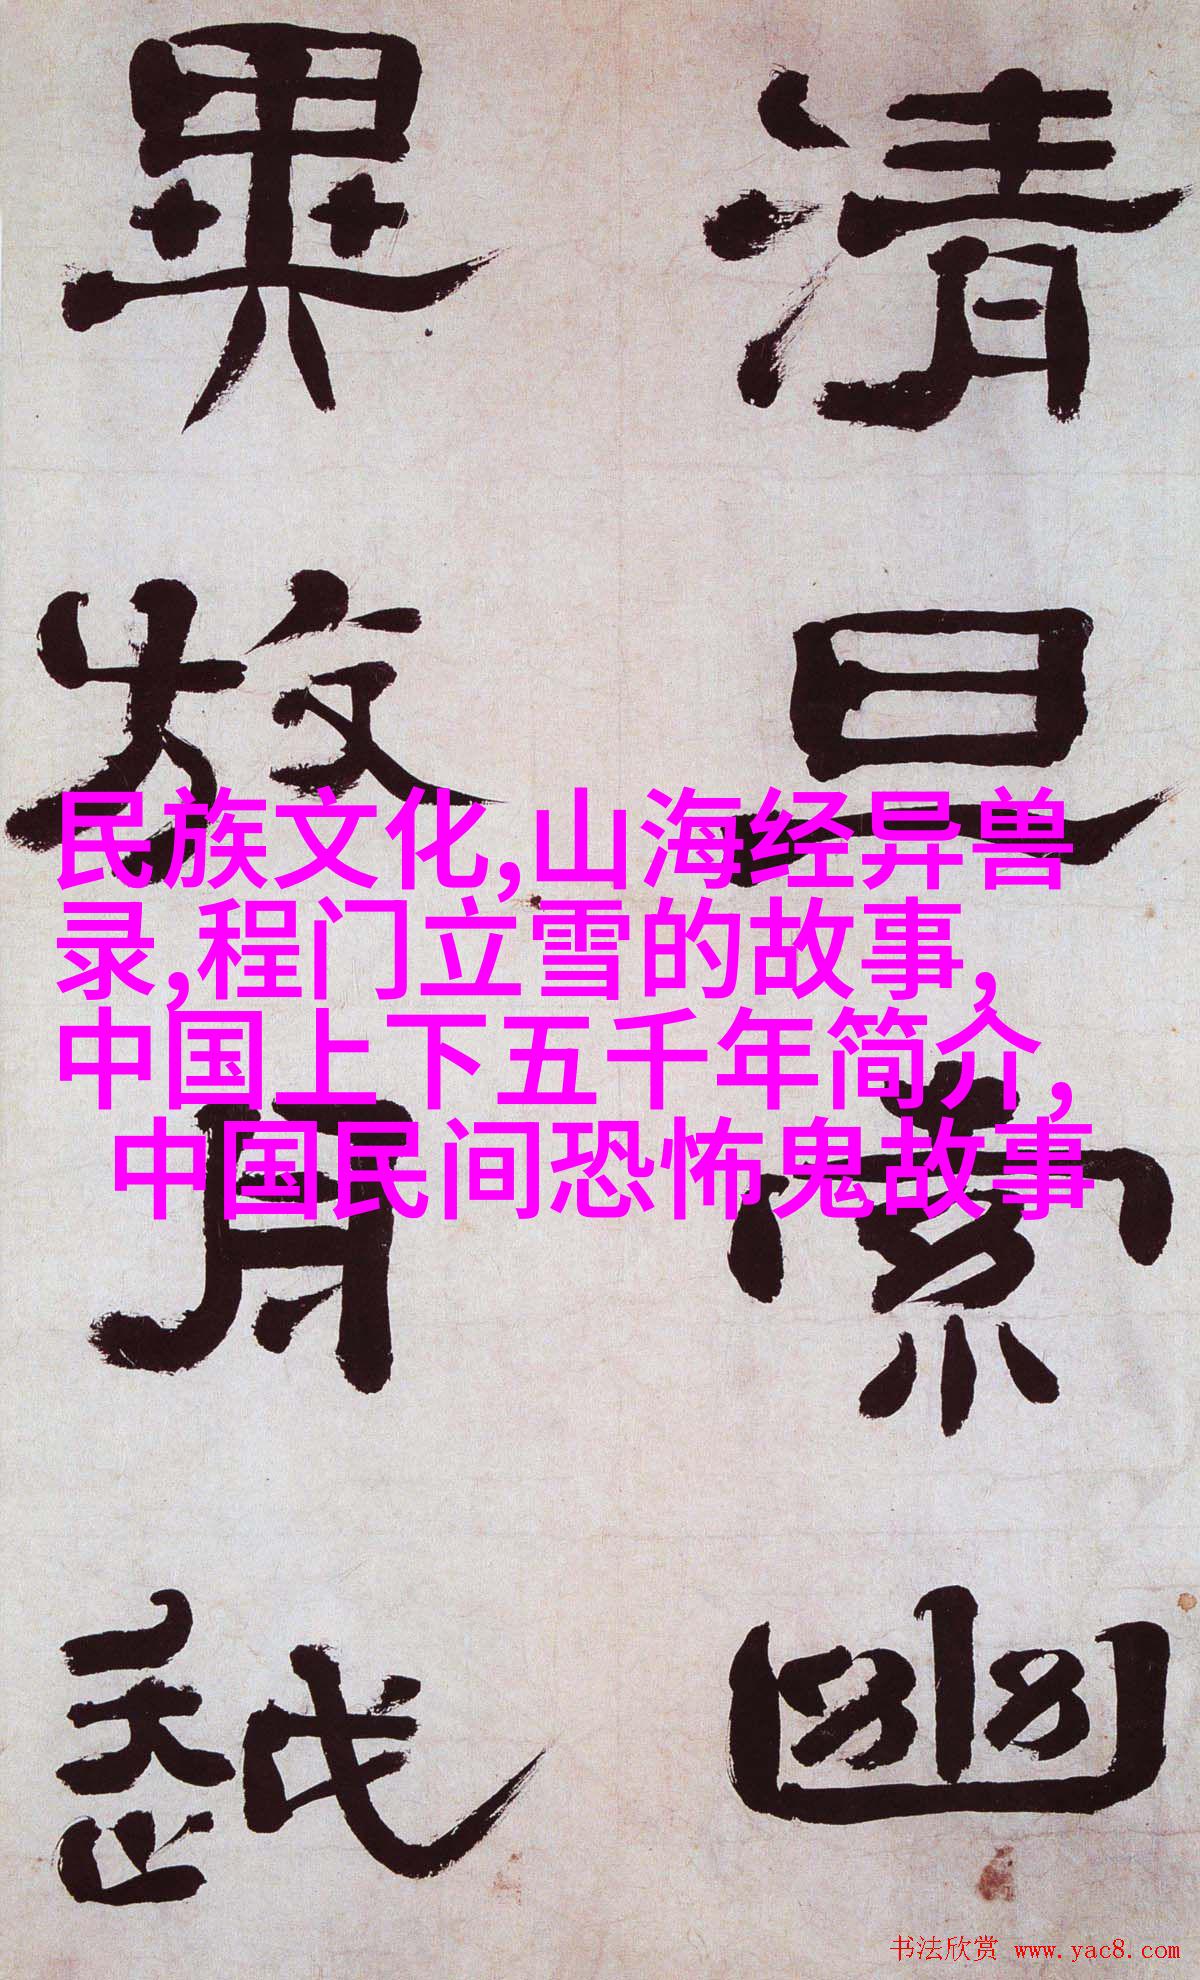 清旦索幽
異放舟越
民族文化,山海经异兽
录,程门立雪的故事,
中国上下五千年简介,
中国民间恐怖鬼故事
书法欣赏 www.yac8.com